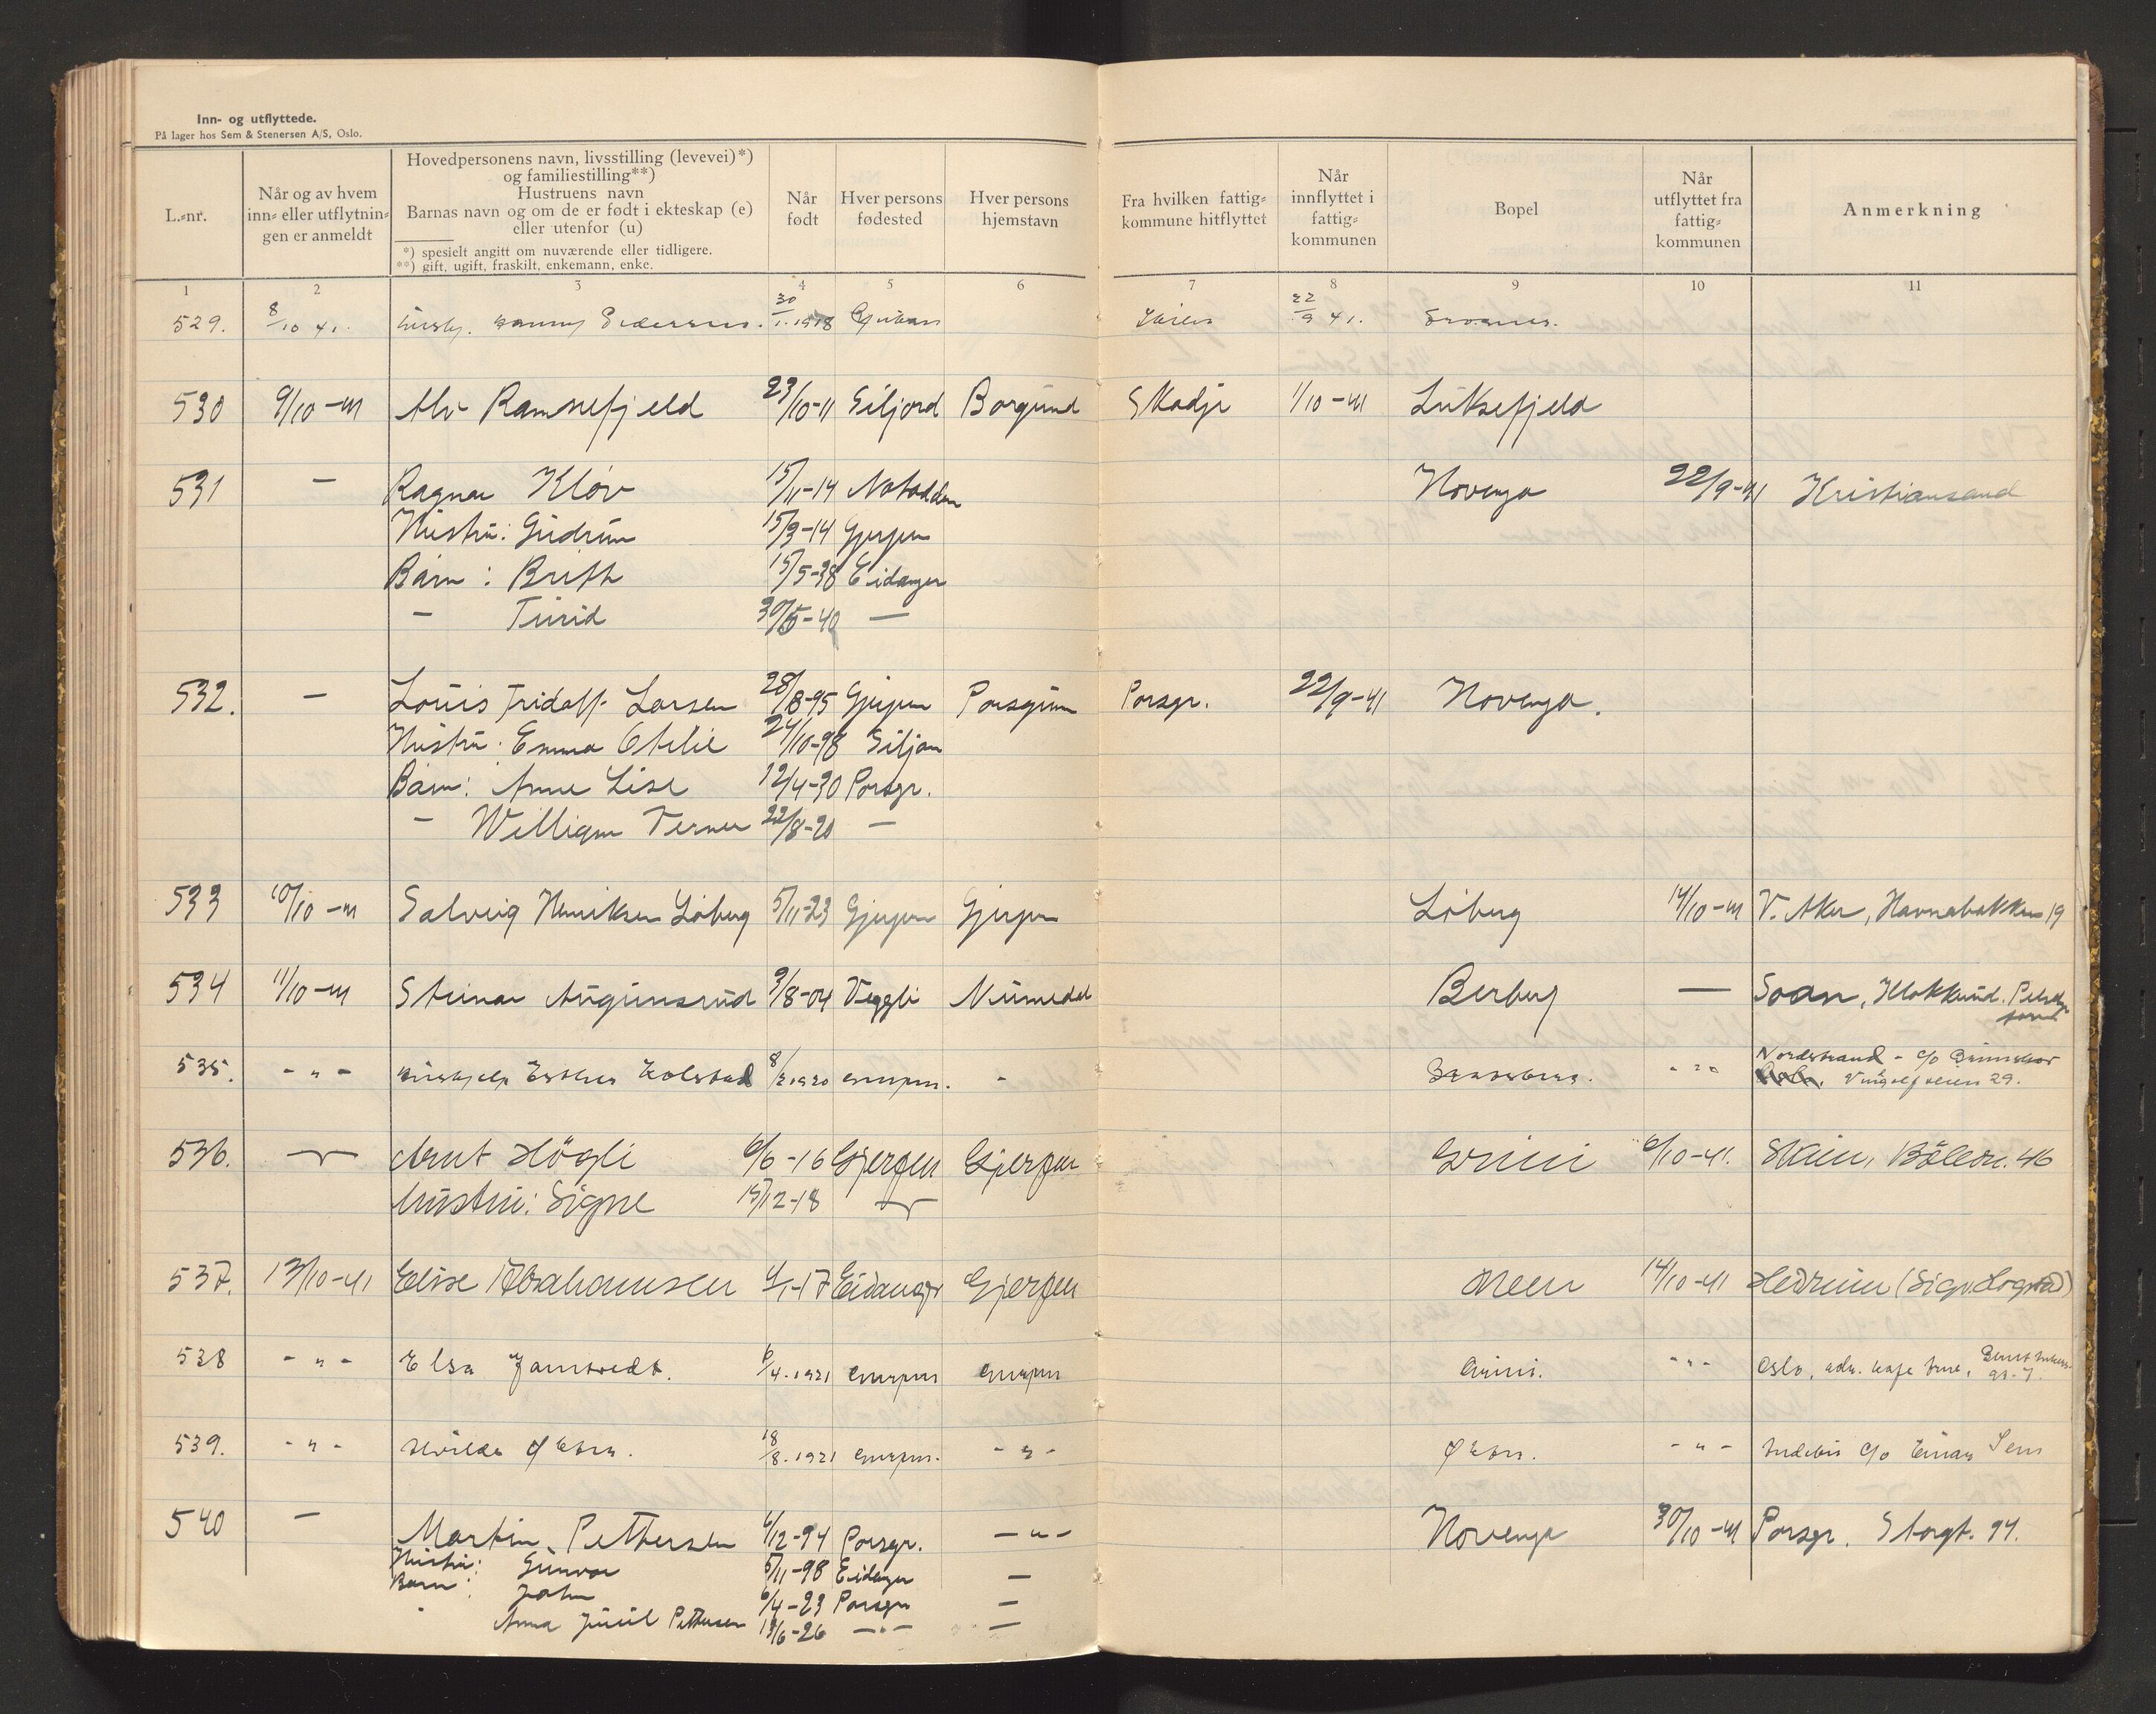 Inn- og utflyttede.
På lager hos Sem & Stenersen A/S, Oslo.
L.-nr.
Når og av hvem
inn- eller utflytnin-
gen er anmeldt
Hovedpersonens navn, livsstilling (levevei)*)
og familiestilling**)
Hustruens navn
Barnas navn og om de er født i ekteskap (e)
eller utenfor (u)
*) spesielt angitt om nuværende eller tidligere.
**) gift, ugift, fraskilt, enkemann, enke.
Når
født
Hver persons
fødested
Hver persons
hjemstavn
Fra hvilken fattig-
kommune hitflyttet
Når
innflyttet i
fattig-
kommunen
Bopel
Når
utflyttet fra
fattig-
kommunen
Anmerkning
1 2 3 4 5 6 7 8 9 10 11
529. 8/10 41. 30/1.1918 22/9 41.
530 9/10-41 Alv Ramsefjeld 23/10-11 Siljord Borgund Skodje 1/10-41 Luksefjeld
531 — Ragnar Kløv 15/11-14 Notodden Hovenga 22/9-41 Kristiansand
Hustru: Gudrun 15/9-14 Gjerpen
Barn: Brith 15/5-38 Eidanger
— Turid 30/5-40 —
532. — Louis Fridolf Larsen 28/8-95 Gjerpen Porsgrunn Porsgr. 22/9-41 Hovenga.
Hustru: Emma Otelie 24/10-98 Siljan
Barn: Anne Lise 12/4-30 Porsgr.
— William Verner 22/8-20 —
533 10/10-41 Solveig Henriksen Løberg 5/11-23 Gjerpen Gjerpen Løberg 14/10-41 V. Aker, Havnabakken 19
534 11/10-41 Steinar Augunsrud 9/8-04 Veggli Numedal Berberg —
535. -"- Hushjelp Esther Kolstad 8/2 1920 Gjerpen. - -"- Nordstrand - c/o
29.
536. — Arnt Høgli 6/6-16 Gjerpen Gjerpen Grini 6/10-41. Skien, Bøleвг. 46
Hustru: Signe 15/12-18 —
537. 13/10-41 Elise Abrahamsen 4/1-17 Eidanger Gjerpen Meen 14/10-41 Hedrum
538 -"- Elsa Jamtvedt. 6/4.1921 Gjerpen Gjerpen Grini. -"- Oslo,
539. -"- 18/8.1921 Gjerpen. -"- -"- c/o Einar
540 — Martin Pettersen 6/12-94 Porsgr. -"- Hovenga 30/10-41 Porsgr. Storgt. 94.
Hustru: Gunvor 5/11-98 Eidanger —
Barn: John 6/4-23 Porsgr —
" Anna Juul Pettersen 13/6-26 -"- —